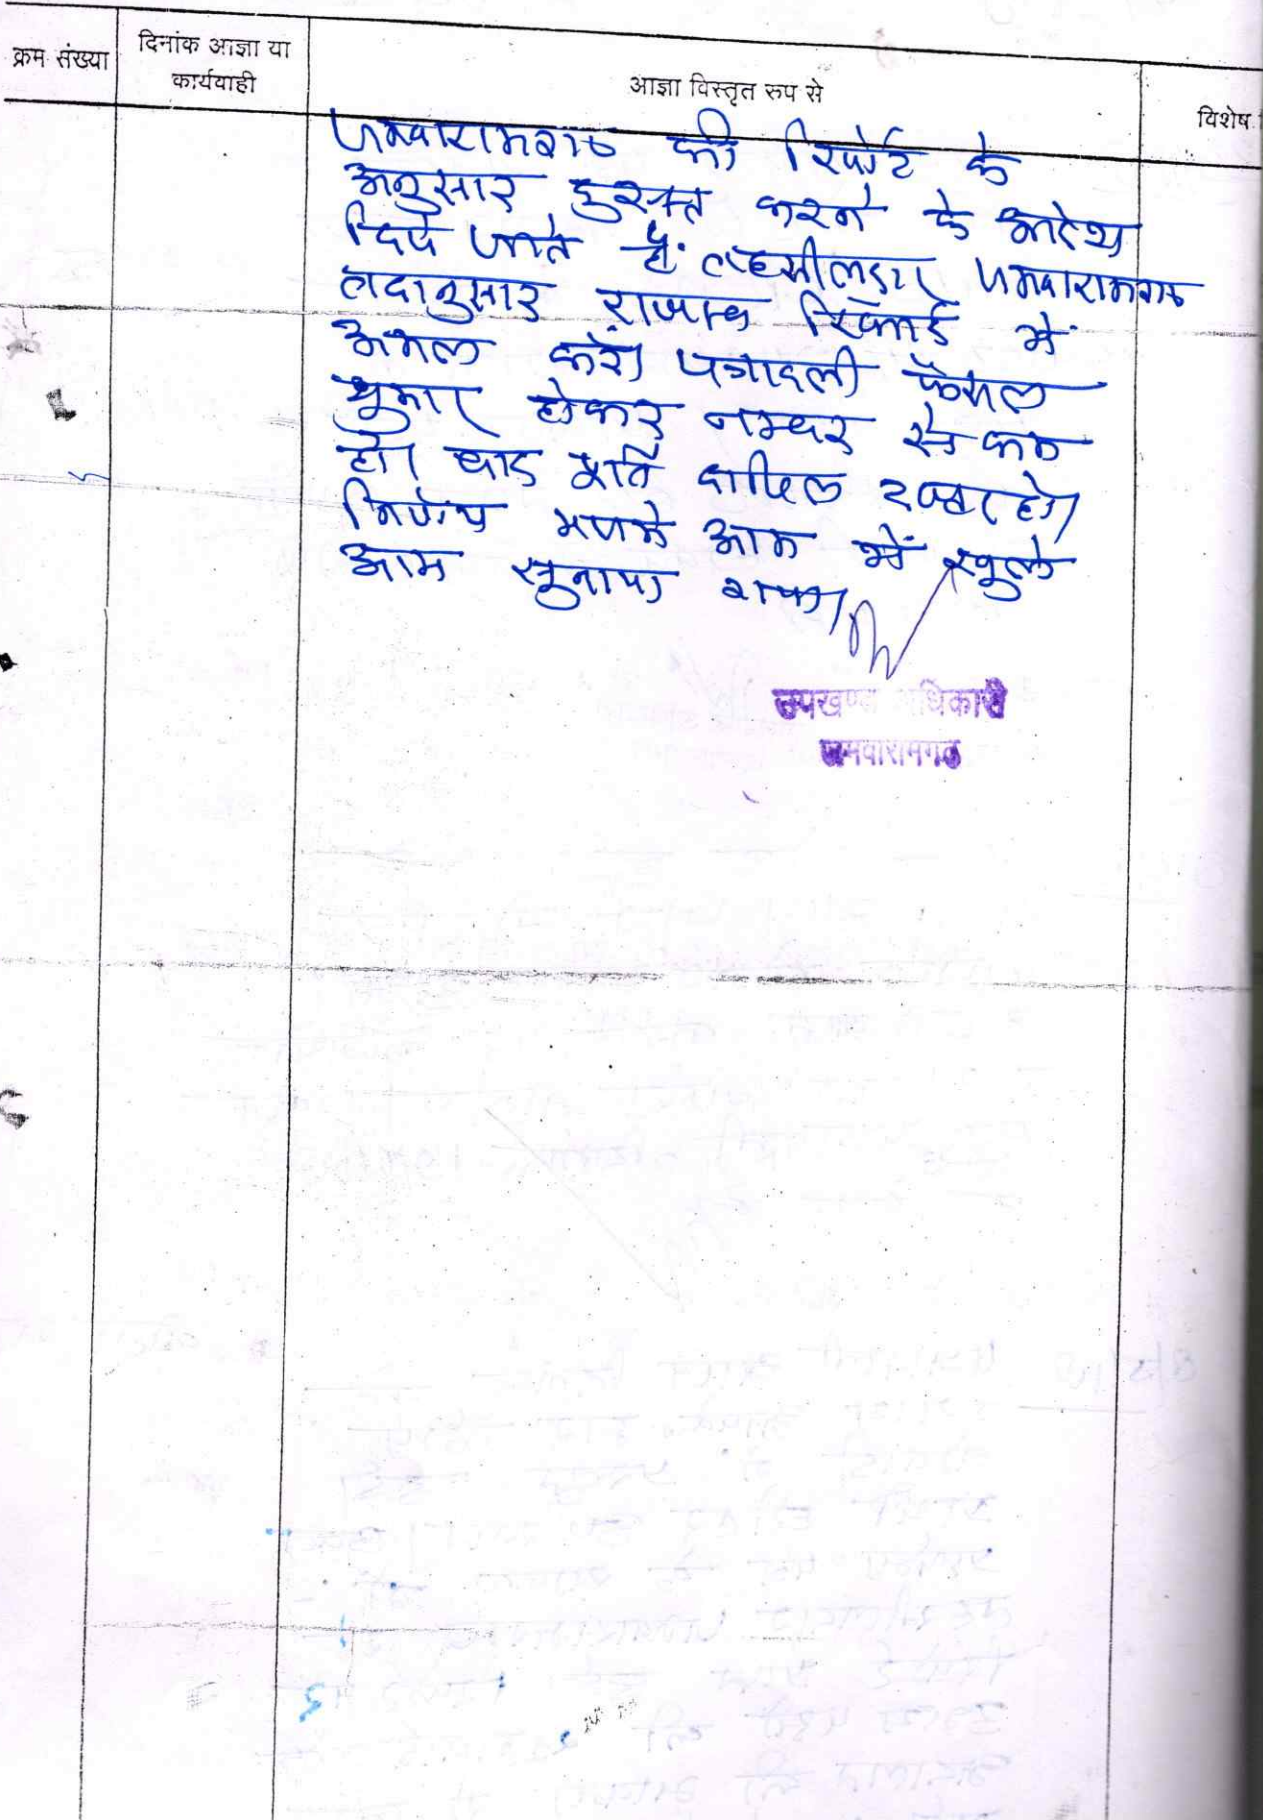 क्रम संख्या
दिनांक आज्ञा या
कार्यवाही
आज्ञा विस्तृत रूप से
विशेष
जमवारामगढ की रिपोर्ट के
अनुसार दुरस्त करने के आदेश
दिये जाते हैं. तहसीलदार जमवारामगढ
तदानुसार राजस्व रिकार्ड में
अमल करें। पत्रावली फैसल
शुमार होकर नम्बर से कम
हो। बाद पूर्ति दाखिल दफ्तर हो।
निर्णय मजमे आम में खुले
आम सुनाया गया।
उपखण्ड अधिकारी
जमवारामगढ